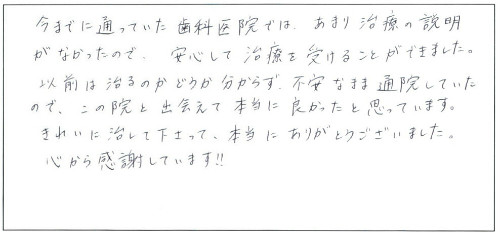 今までに通っていた歯科医院では、あまり治療の説明
がなかったので、安心して治療を受けることができました。
以前は治るのかどうか分からず、不安なまま通院していた
ので、この院と出会えて本当に良かったと思っています。
きれいに治して下さって、本当にありがとうございました。
心から感謝しています!!